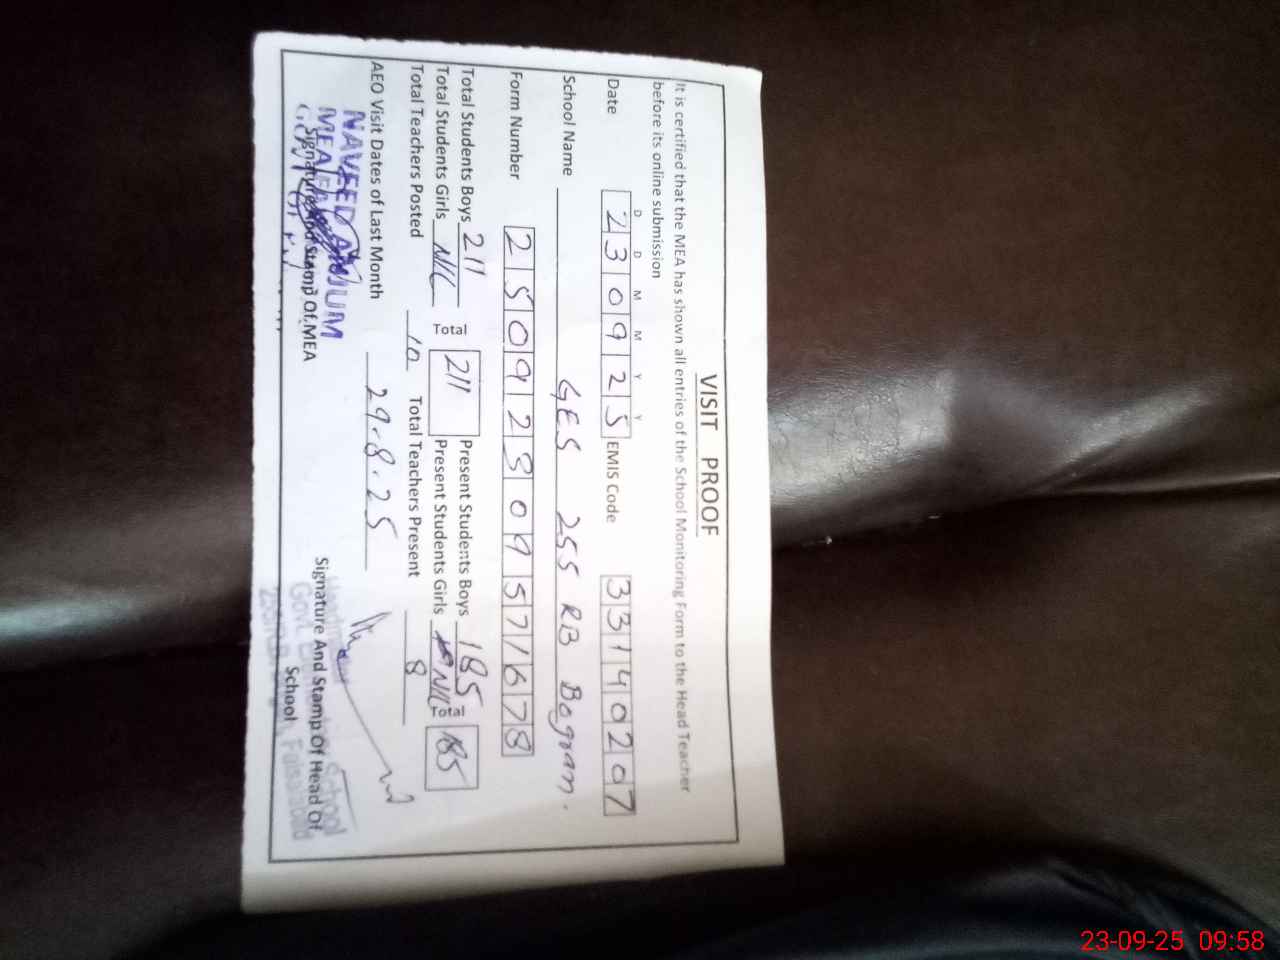 VISIT PROOF
It is certified that the MEA has shown all entries of the School Monitoring Form to the Head Teacher
before its online submission
D D M M Y Y
Date 230925 EMIS Code 33140207
School Name GES 255 RB Bogran.
Form Number 2509230957 1678
Total Students Boys 211 Total 211 Present Students Boys 185 Total 185
Total Students Girls NIL Present Students Girls NIL
Total Teachers Posted 10 Total Teachers Present 8
AEO Visit Dates of Last Month 29.8.25
NAVEED ANJUM
MEA
Signature And Stamp Of MEA
Signature And Stamp Of Head Of
School
School
Faisalabad
23-09-25 09:58